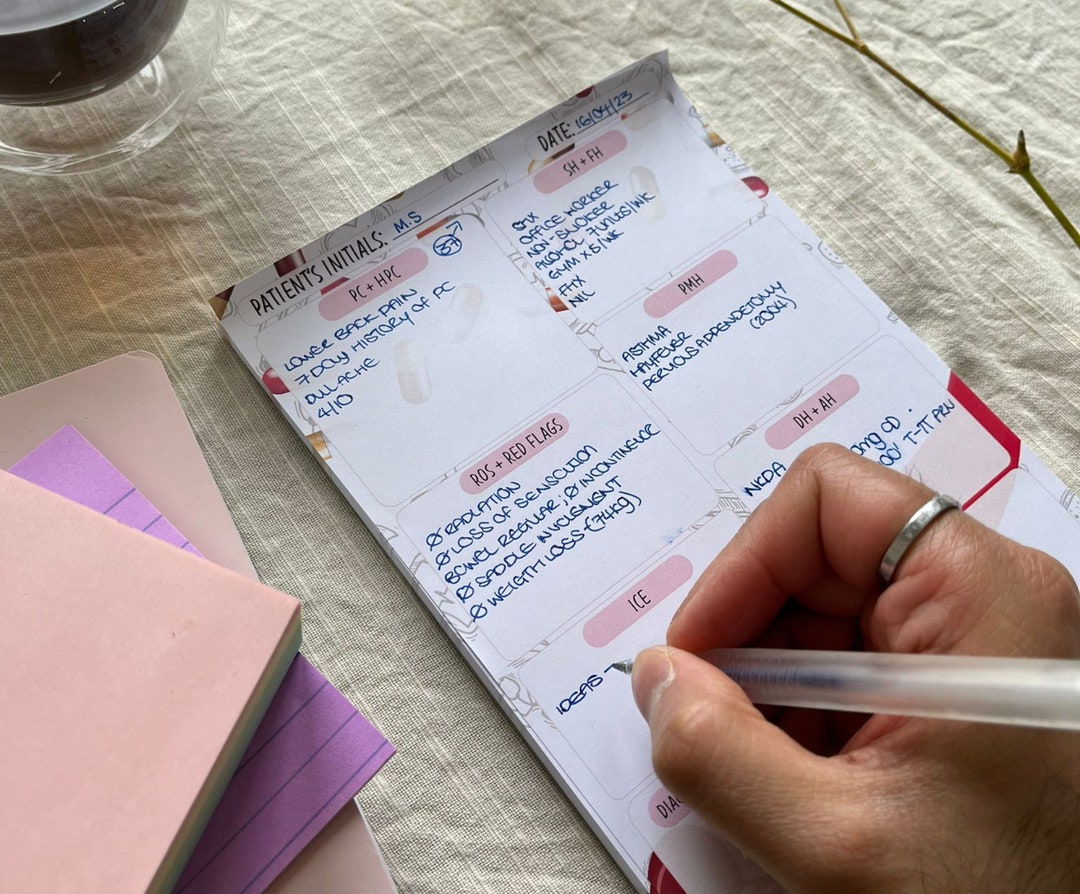 PATIENT'S INITIALS: M.S
DATE: 16/04/23
PC + HPC
37
LOWER BACK PAIN
7 DAY HISTORY OF PC
DULL ACHE
4/10
SH + FH
OFFICE WORKER
NON-SMOKER
ALCOHOL 7 UNITS/WK
GYM X5/WK
FHX
NIL
ROS + RED FLAGS
Ø RADIATION
Ø LOSS OF SENSATION
BOWEL REGULAR, Ø INCONTINENCE
Ø SADDLE INVOLVEMENT
Ø WEIGTH LOSS (74kg)
PMH
ASTHMA
HAYFEVER
PERVIOUS APPENDETOMY
(2004)
DH + AH
NKDA
mg OD
T-TT PRN
ICE
IDEAS
DIA